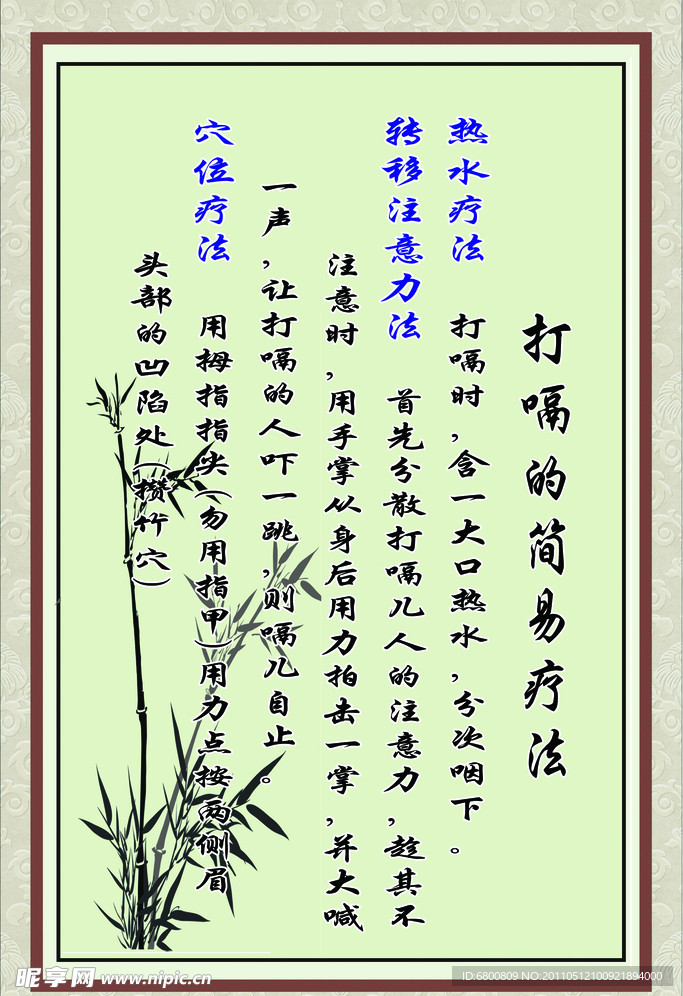 打嗝的简易疗法
热水疗法 打嗝时,含一大口热水,分次咽下。
转移注意力法 首先分散打嗝儿人的注意力,趁其不
注意时,用手掌从身后用力拍击一掌,并大喊
一声,让打嗝的人吓一跳,则嗝儿自止。
穴位疗法 用拇指指尖(勿用指甲)用力点按两侧眉
头部的凹陷处(攒竹穴)
昵享网 www.nipic.cn
ID:6800809 NO:20110512100921894000